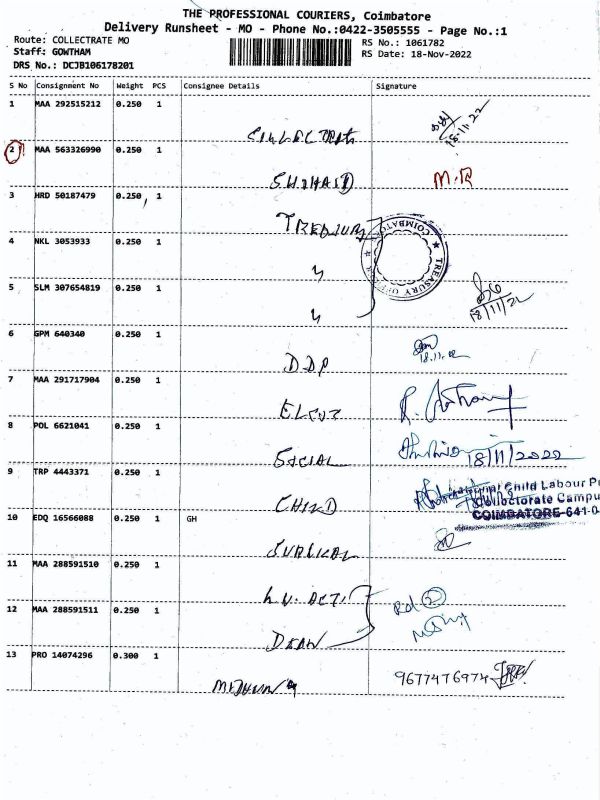 THE PROFESSIONAL COURIERS, Coimbatore
Delivery Runsheet - MO - Phone No.:0422-3505555 - Page No.:1
Route: COLLECTRATE MO
Staff: GOWTHAM
DRS No.: DCJB106178201
RS No.: 1061782
RS Date: 18-Nov-2022
S No Consignment No Weight PCS Consignee Details Signature
1 MAA 292515212 0.250 1
18.11.22
2 MAA 563326990 0.250 1
M.R
3 HRD 50187479 0.250 1
TREASURY
COIMBATORE
TREASURY OFFICE
4 NKL 3053933 0.250 1
5 SLM 307654819 0.250 1
18/11/22
6 GPM 640340 0.250 1
DDP
18.11.22
7 MAA 291717904 0.250 1
8 POL 6621041 0.250 1
SOCIAL
18/11/2022
9 TRP 4443371 0.250 1
CHILD
Child Labour
Collectorate Campu
COIMBATORE-641 0
10 EDQ 16566088 0.250 1 GH
11 MAA 288591510 0.250 1
12 MAA 288591511 0.250 1
DEAN
13 PRO 14074296 0.300 1
9677476974